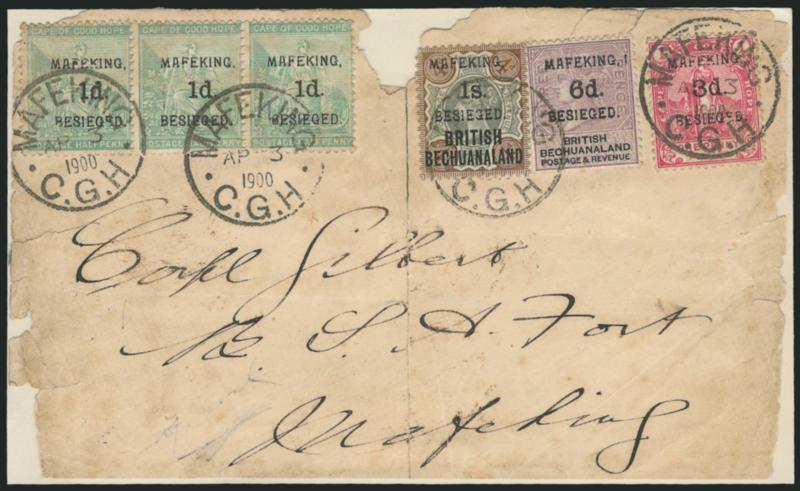 CAPE OF GOOD HOPE CAPE OF GOOD HOPE CAPE OF GOOD HOPE
MAFEKING, MAFEKING, MAFEKING,
1d. 1d. 1d.
BESIEGED. BESIEGED. BESIEGED.
POSTAGE HALFPENNY POSTAGE
MAFEKING
AP 3
1900
C.G.H
MAFEKING
AP 3
1900
C.G.H
MAFEKING,
1s.
BESIEGED.
BRITISH
BECHUANALAND
MAFEKING,
6d.
BESIEGED.
BRITISH
BECHUANALAND
POSTAGE & REVENUE
C.G.H
MAFEKING,
3d.
BESIEGED.
MAFEKING
AP 3
1900
C.G.H
Corpl Gilbert
S. A. Fort
Mafeking